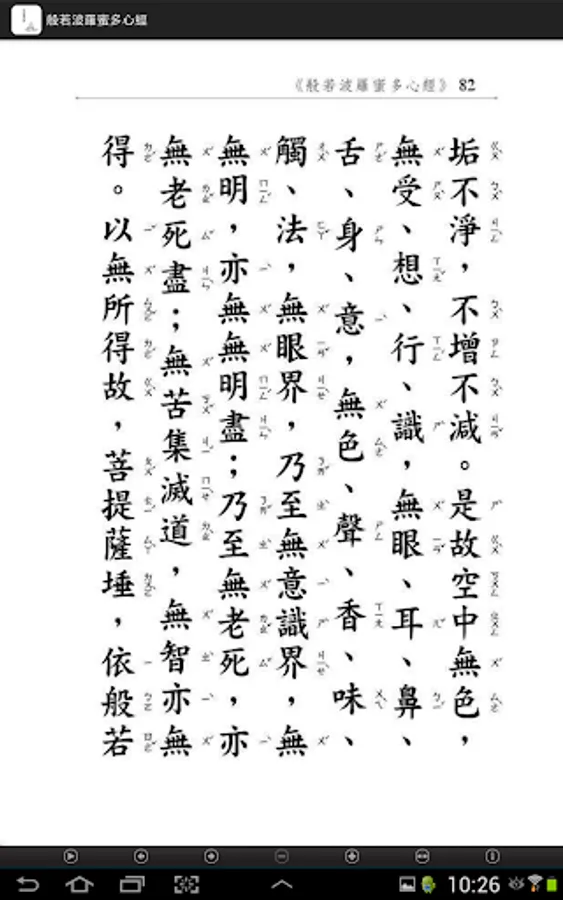 般若波羅蜜多心經
《般若波羅蜜多心經》 82
垢不淨，不增不減。是故空中無色，
無受、想、行、識，無眼、耳、鼻、
舌、身、意，無色、聲、香、味、
觸、法，無眼界，乃至無意識界，無
無明，亦無無明盡；乃至無老死，亦
無老死盡；無苦集滅道，無智亦無
得。以無所得故，菩提薩埵，依般若
10:26